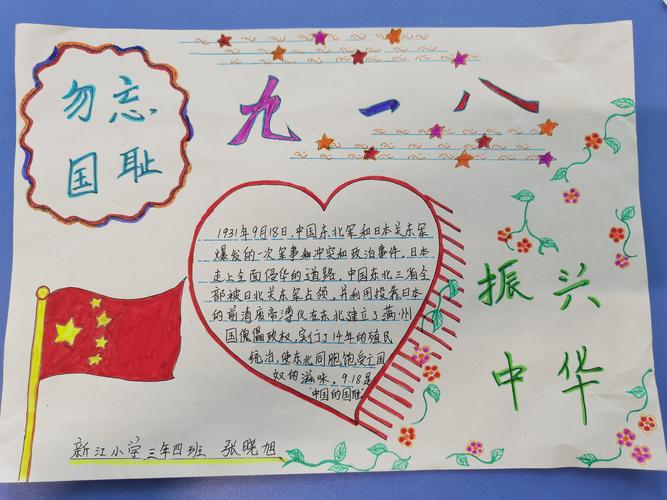 勿忘
国耻
九一八
1931年9月18日,中国东北军和日本关东军
爆发的一次军事和冲突和政治事件。日本
走上全面侵华的道路。中国东北三省全
部被日北关东军占领,并利用投靠日本
的前清废帝溥仪在东北建立了满州
国傀儡政权,实行了14年的殖民
统治,使东北同胞饱受亡国
奴的滋味。9.18是
"中国的国耻"
振兴
中华
新江小学三年四班 张晓旭